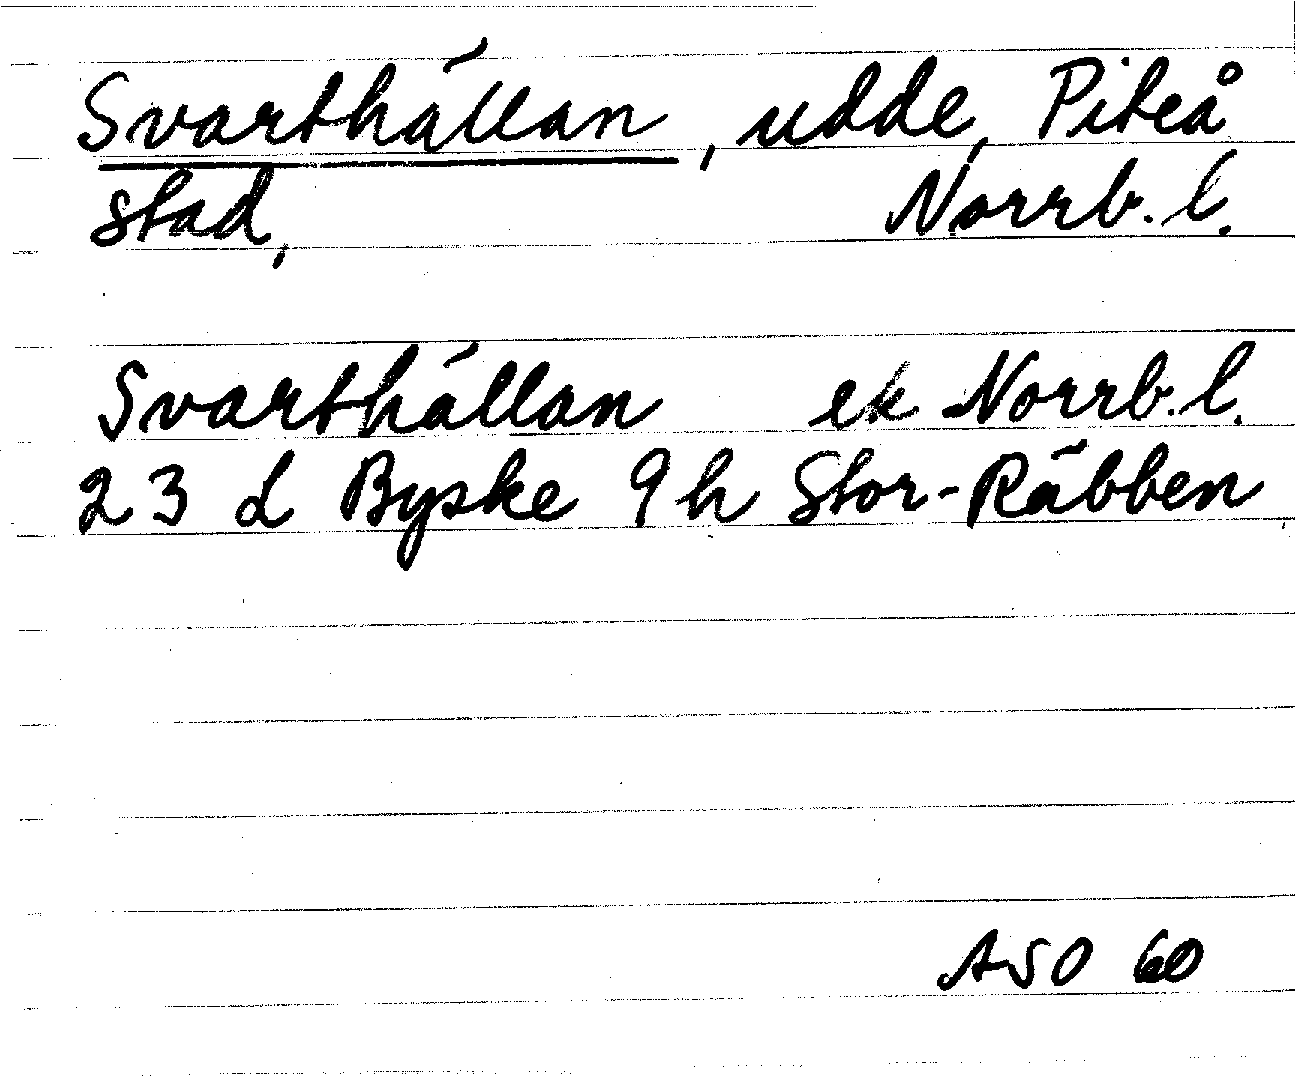 Svarthällan, udde, Piteå
stad, Norrb. l.
Svarthällan ek Norrb. l.
23 L Byske 9h Stor-Räbben
ASO 60